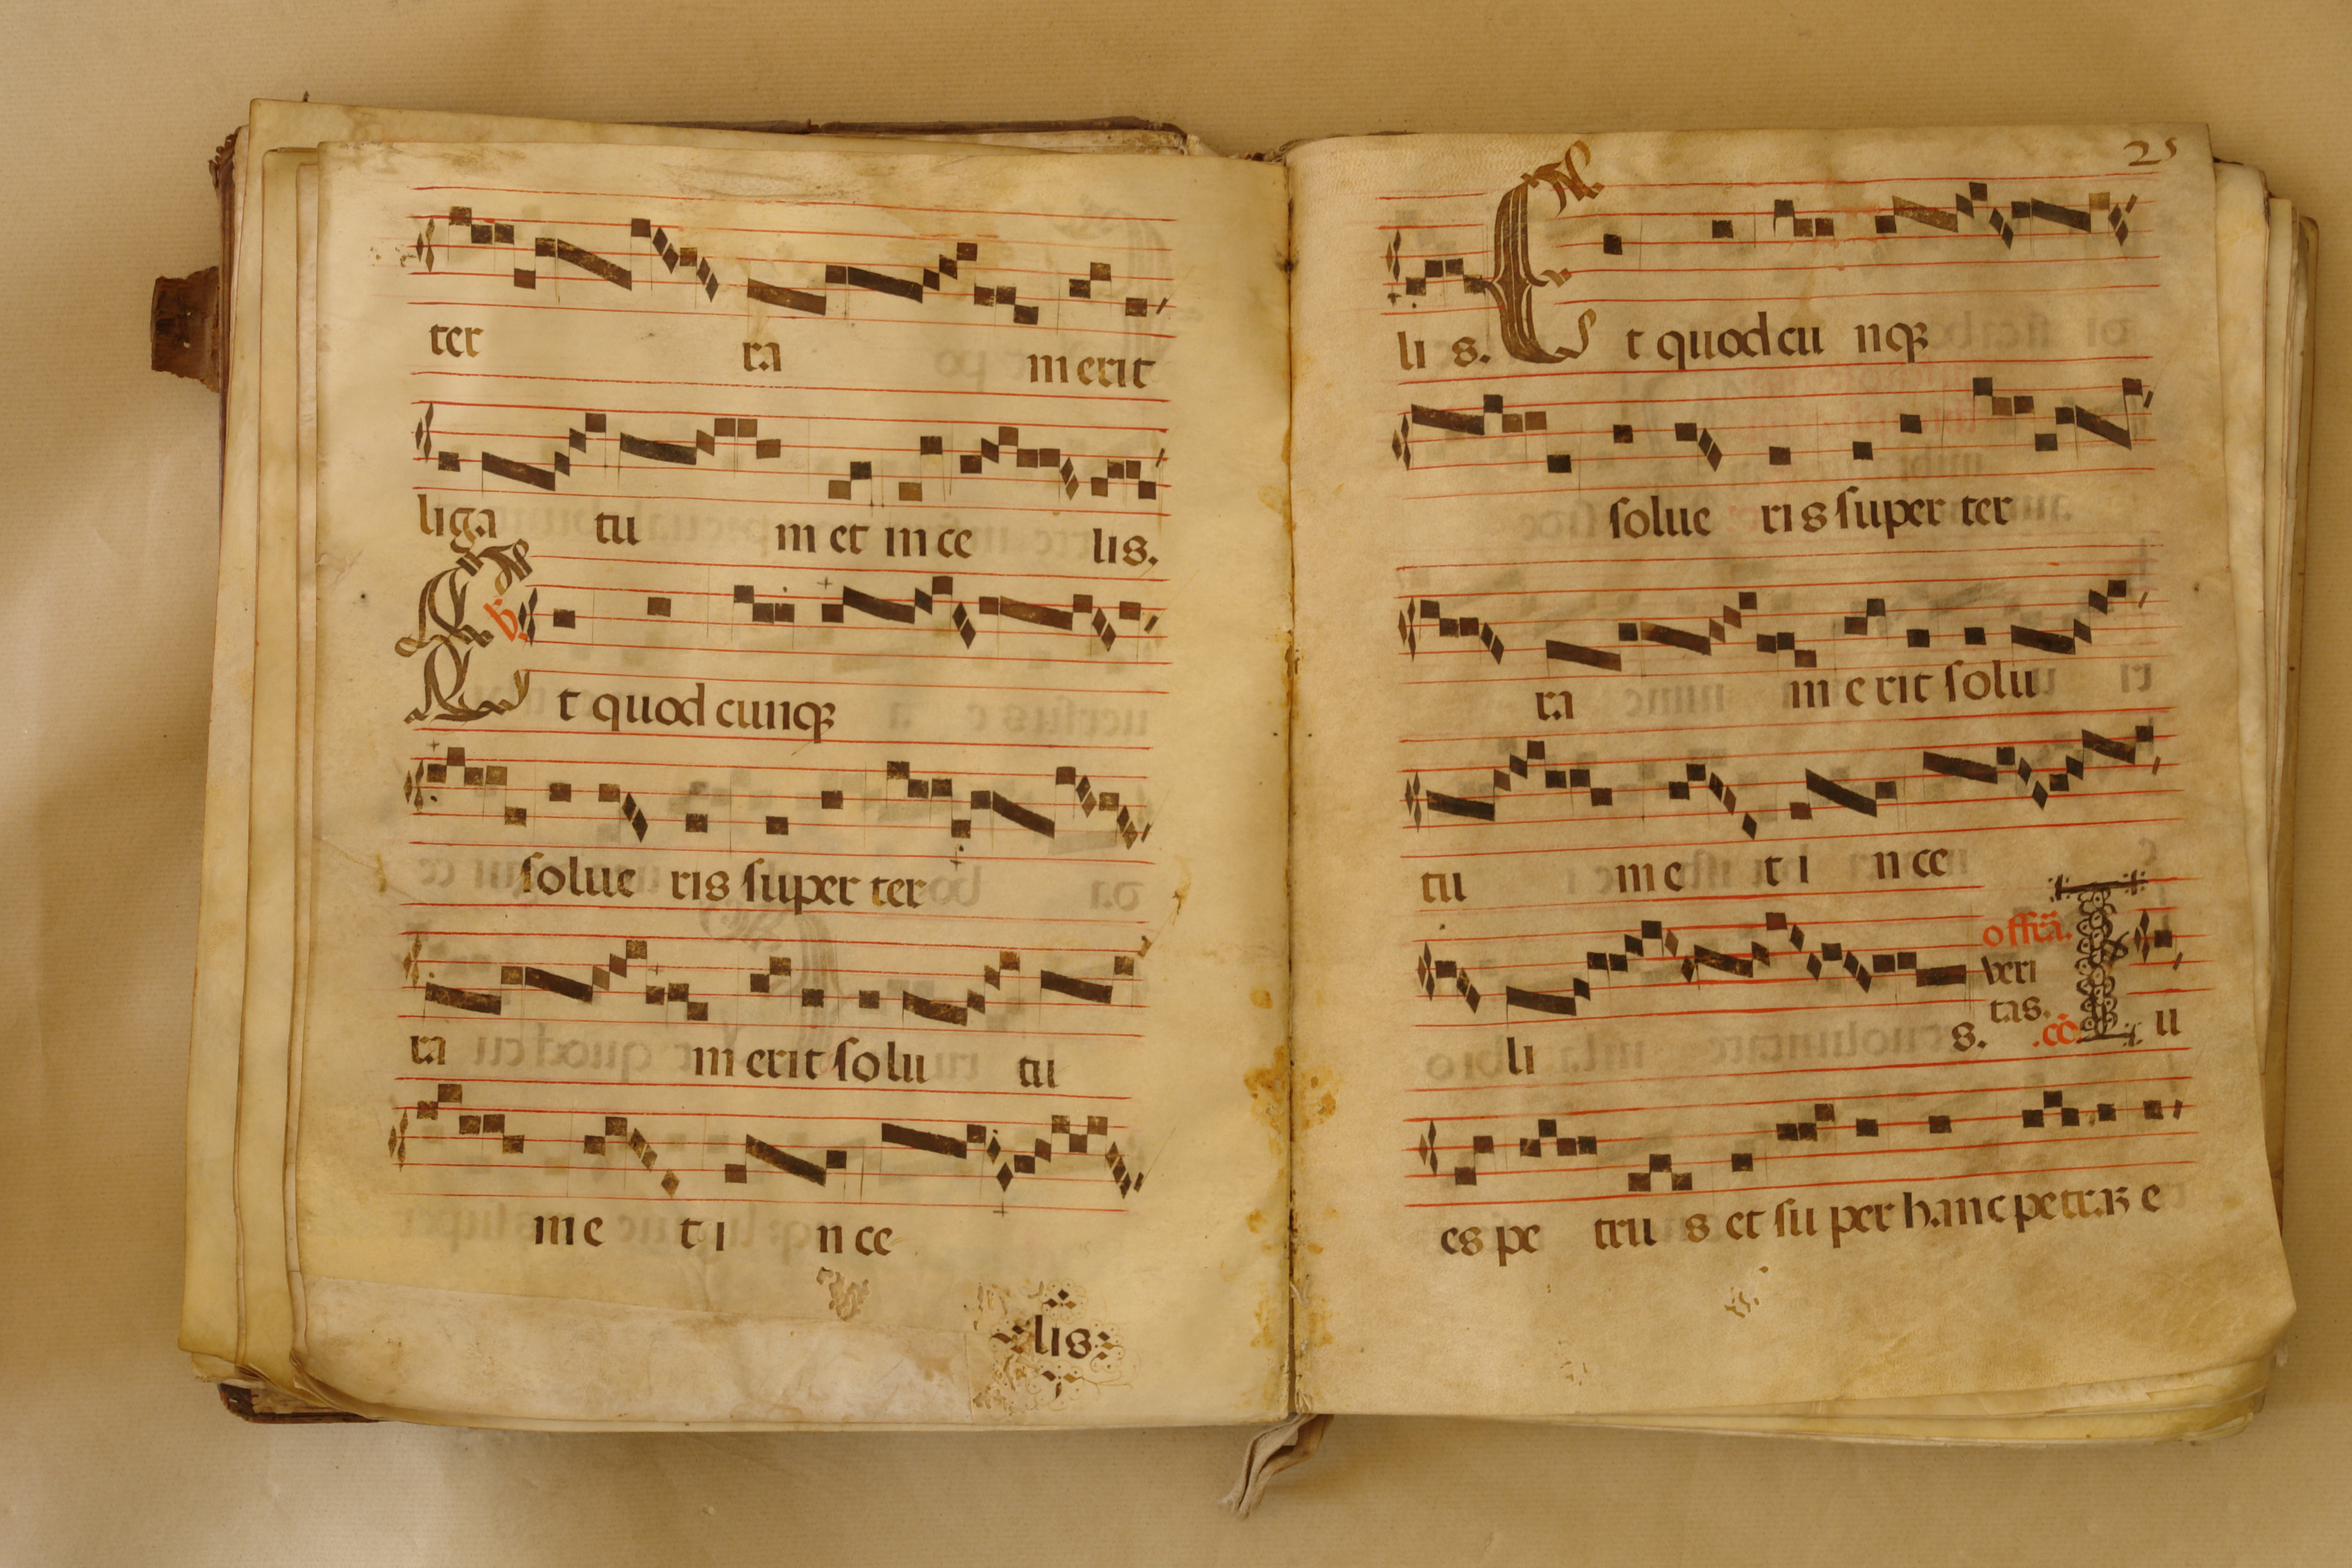 ter ra m erit
liga tu m et in ce lis.
Et quod cunqꝫ
ſolue ris ſuper ter
ra m erit ſolu tu
m e t i n ce
lis
25
li s. Et quod cu nqꝫ
ſolue ri s ſuper ter
ra m e rit ſolu
tu m e t i n ce
li s. offr̃a. veri tas. .cõ Tu
es pe tru s et ſu per hanc petraꝫ e